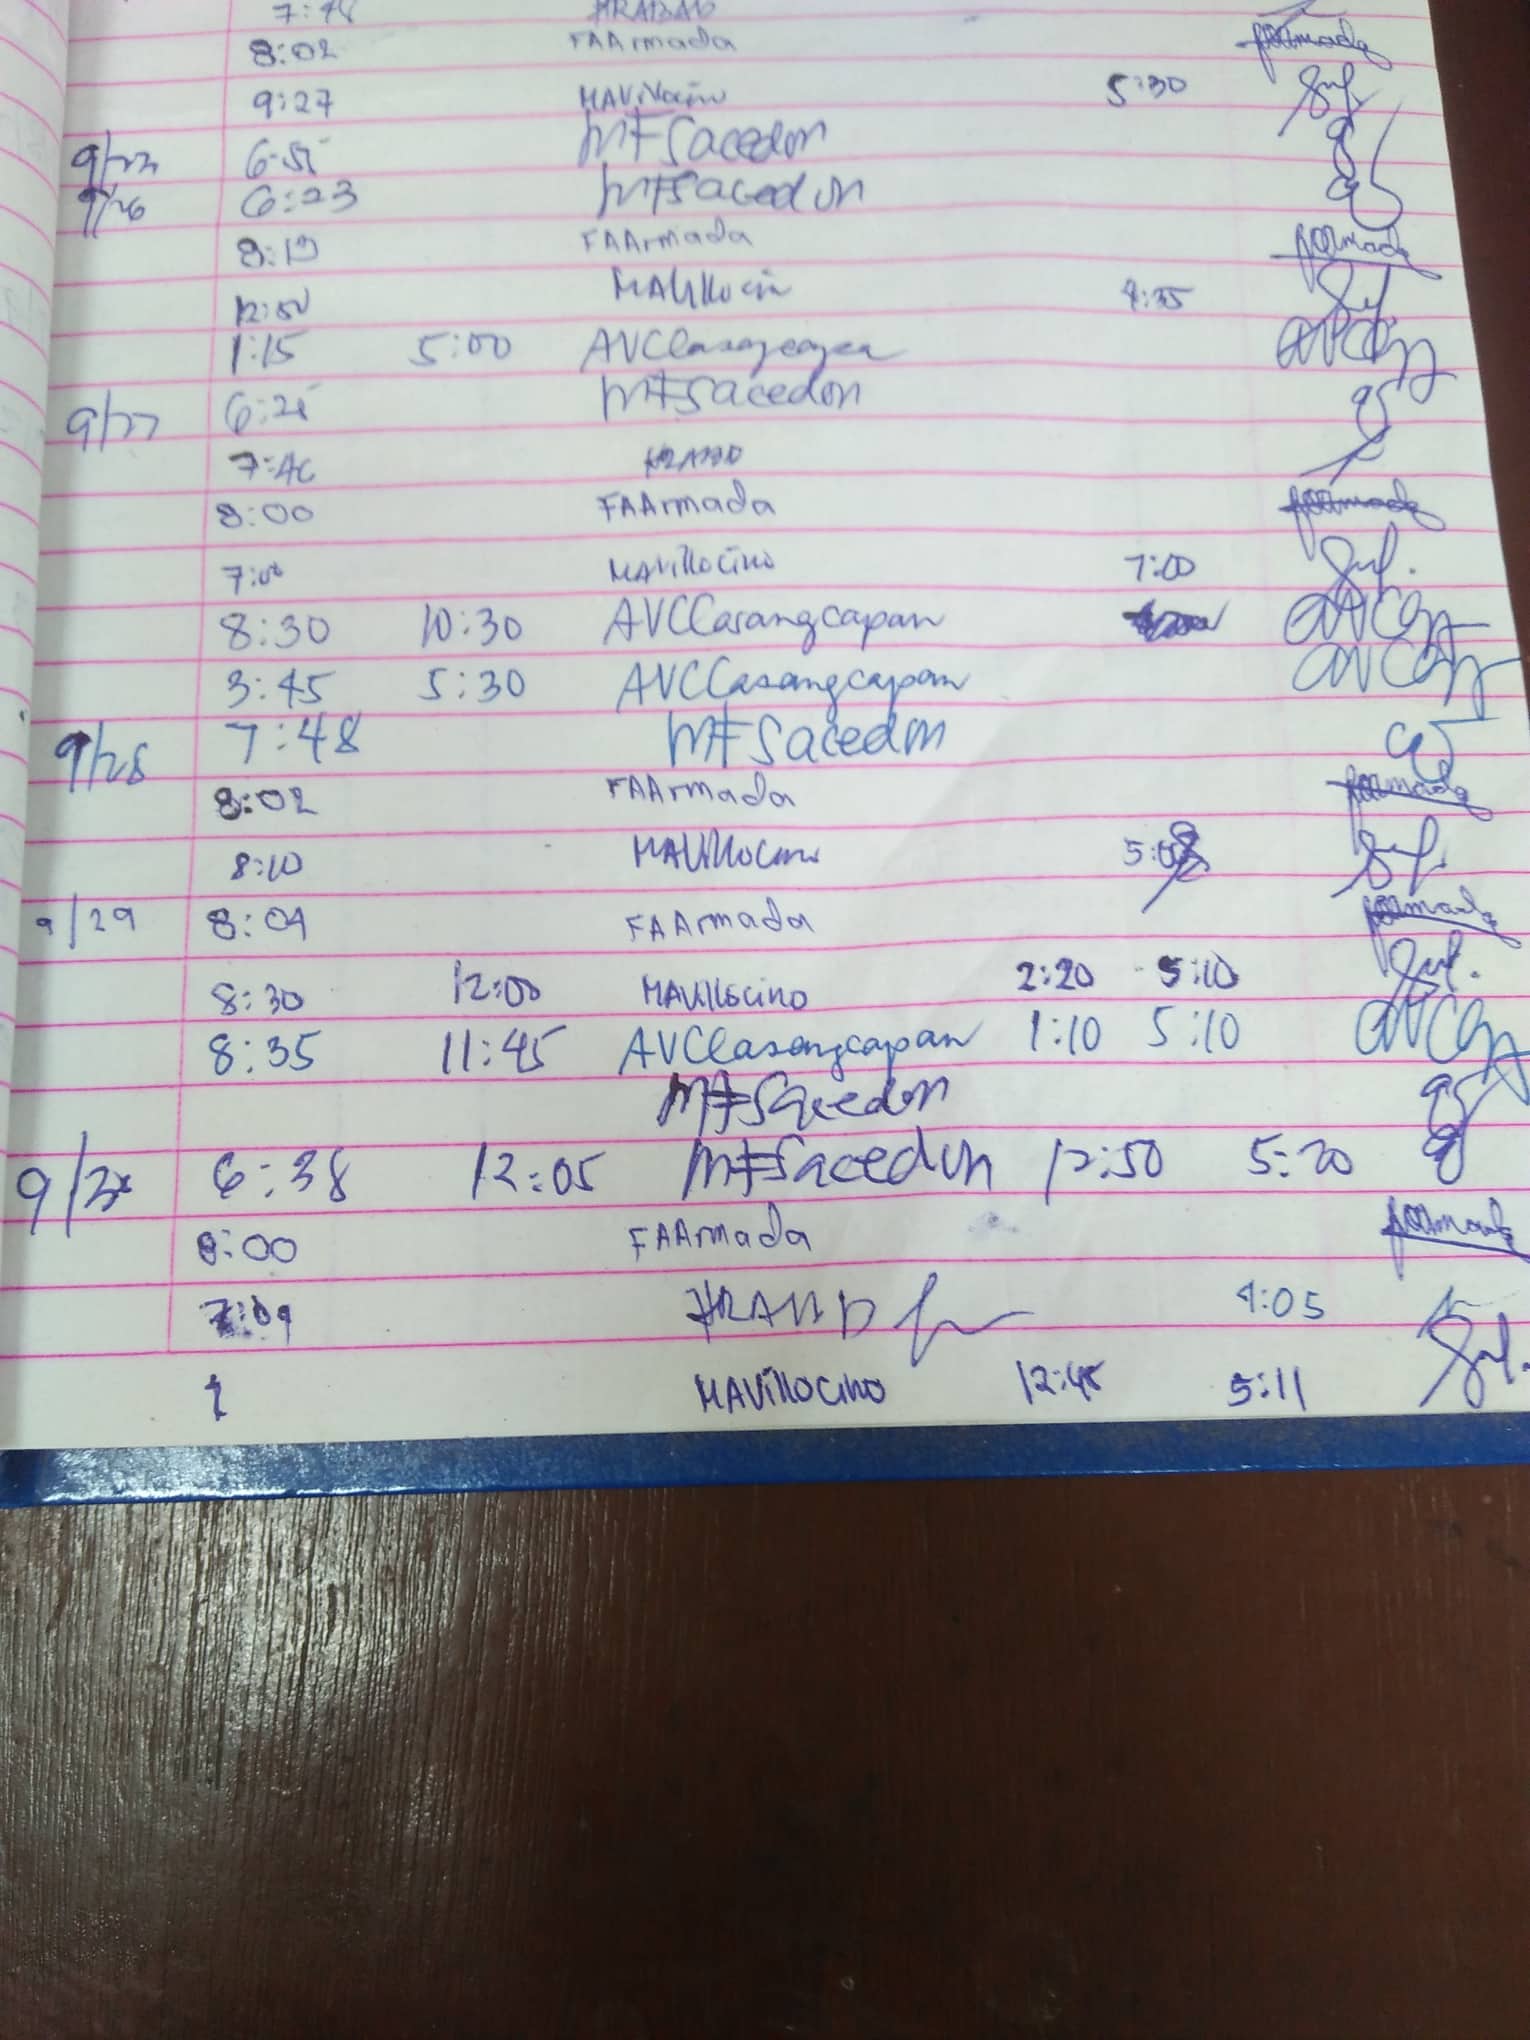 7:48 HRABAD
8:02 FAArmada FAArmada
9:27 MAVillocino 5:30
MFSacedon
9/26 6:23 MFSacedon
8:13 FAArmada FAArmada
MAVillocin 4:35
1:15 5:00 AVCCasangcapan
9/27 MFSacedon
7:40
8:00 FAArmada FAArmada
7:00 MAVillocino 7:00
8:30 10:30 AVCCasangcapan
3:45 5:30 AVCCasangcapan
9/28 7:48 MFSacedon
8:02 FAArmada FAArmada
8:10 MAVillocino
9/29 8:04 FAArmada FAArmada
8:30 12:00 MAVillocino 2:20 5:10
8:35 11:45 AVCCasangcapan 1:10 5:10
MFSacedon
6:38 12:05 MFSacedon 12:50 5:20
8:00 FAArmada FAArmada
7:09 4:05
MAVillocino 12:45 5:11